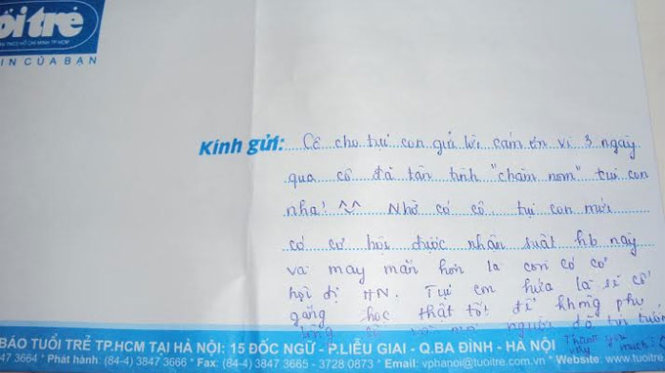 ổi trẻ
IN CỦA BẠN
Kính gửi: Cô cho tụi con gửi lời cảm ơn vì 3 ngày
qua cô đã tận tình "chăm nom" tụi con
nha! ^^ Nhờ có cô tụi con mới
có cơ hội được nhận suất hb này
và may mắn hơn là con có cơ
hội đi HN. Tụi em hứa là sẽ cố
gắng học thật tốt để không phụ
BÁO TUỔI TRẺ TP.HCM TẠI HÀ NỘI: 15 ĐỐC NGỮ - P.LIỄU GIAI - Q.BA ĐÌNH - HÀ NỘI
847 3664 * Phát hành: (84-4) 3847 3666 * Fax: (84-4) 3847 3665 - 3728 0873 * Email: vphanoi@tuoitre.com.vn * Website: www.tuoitre